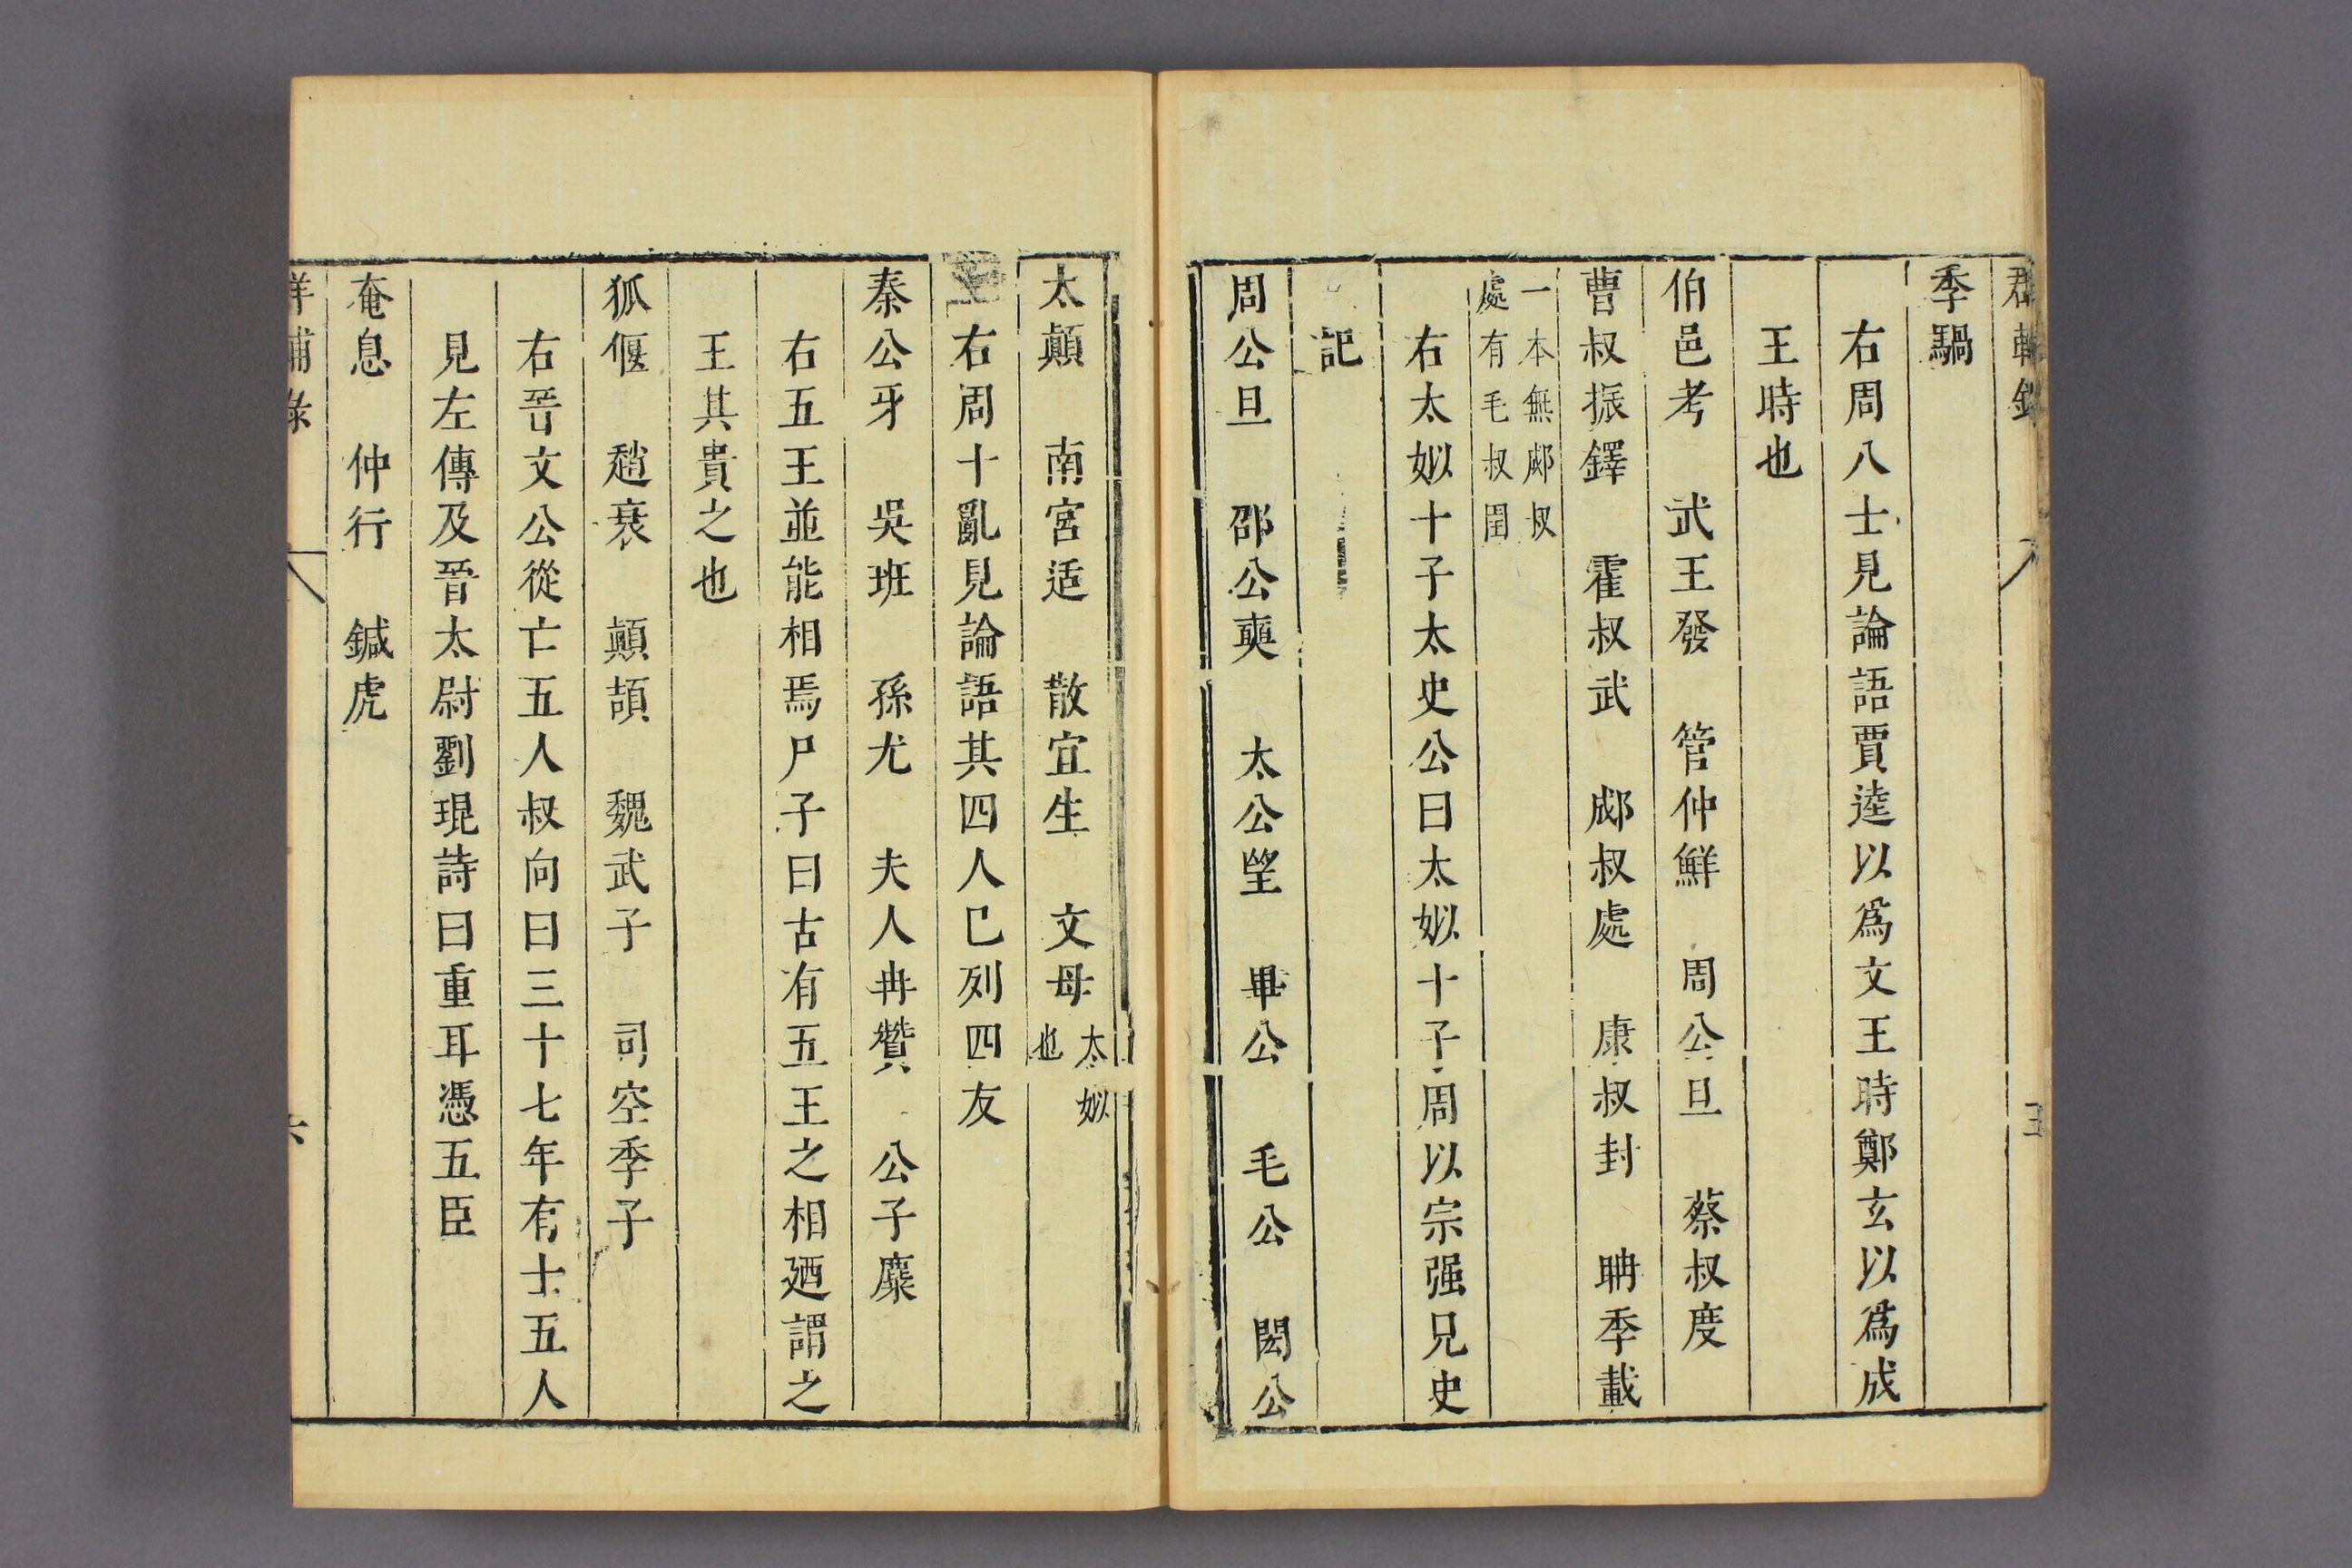 季騧
右周八士見論語賈逵以爲文王時鄭玄以爲成
王時也
伯邑考　武王發　管仲鮮　周公旦　蔡叔度
曹叔振鐸　霍叔武　郕叔處　康叔封　聃季載
一本無郕叔
處有毛叔圉
右太姒十子太史公曰太姒十子周以宗强兄史
記
周公旦　邵公奭　太公望　畢公　毛公　閎公
太顛　南宮适　散宜生　文母太姒也
右周十亂見論語其四人已列四友
秦公牙　吳班　孫尤　夫人冉贊　公子麋
右五王並能相焉尸子曰古有五王之相廼謂之
王其貴之也
狐偃　趙衰　顛頡　魏武子　司空季子
右晉文公從亡五人叔向曰三十七年有士五人
見左傳及晉太尉劉琨詩曰重耳憑五臣
奄息　仲行　鍼虎